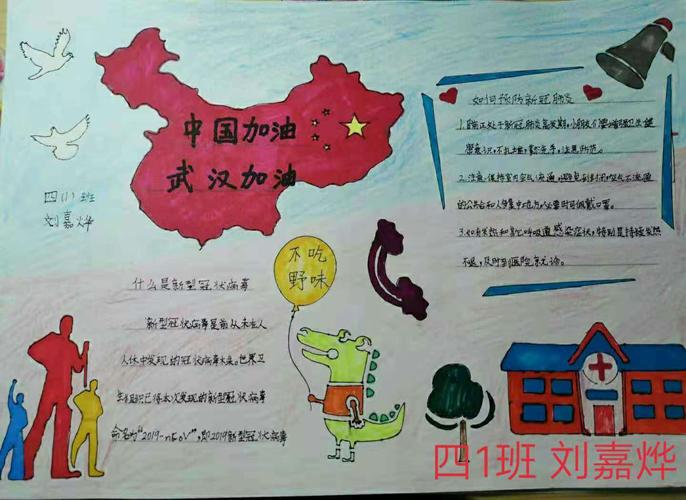 中国加油
武汉加油
四(1)班
刘嘉烨
不吃
野味
什么是新型冠状病毒
新型冠状病毒是指从未在人
人体中发现的冠状病毒未。世界卫
生组织已将本次发现的新型冠状病毒
命名为“2019-nCoV”,即2019新型冠状病毒
如何预防新冠肺炎
1.临正处于新冠肺炎高发期,
意识,不扎堆,勤洗手,注意防范。
2.注意保持室内空气流通,避免到封闭空气不流通
的公共场合和人多集中地方,必要时可佩戴口罩。
3.如有发热和其他呼吸道感染症状,特别是持续发热
不退,及时到医院就诊。
四1班 刘嘉烨